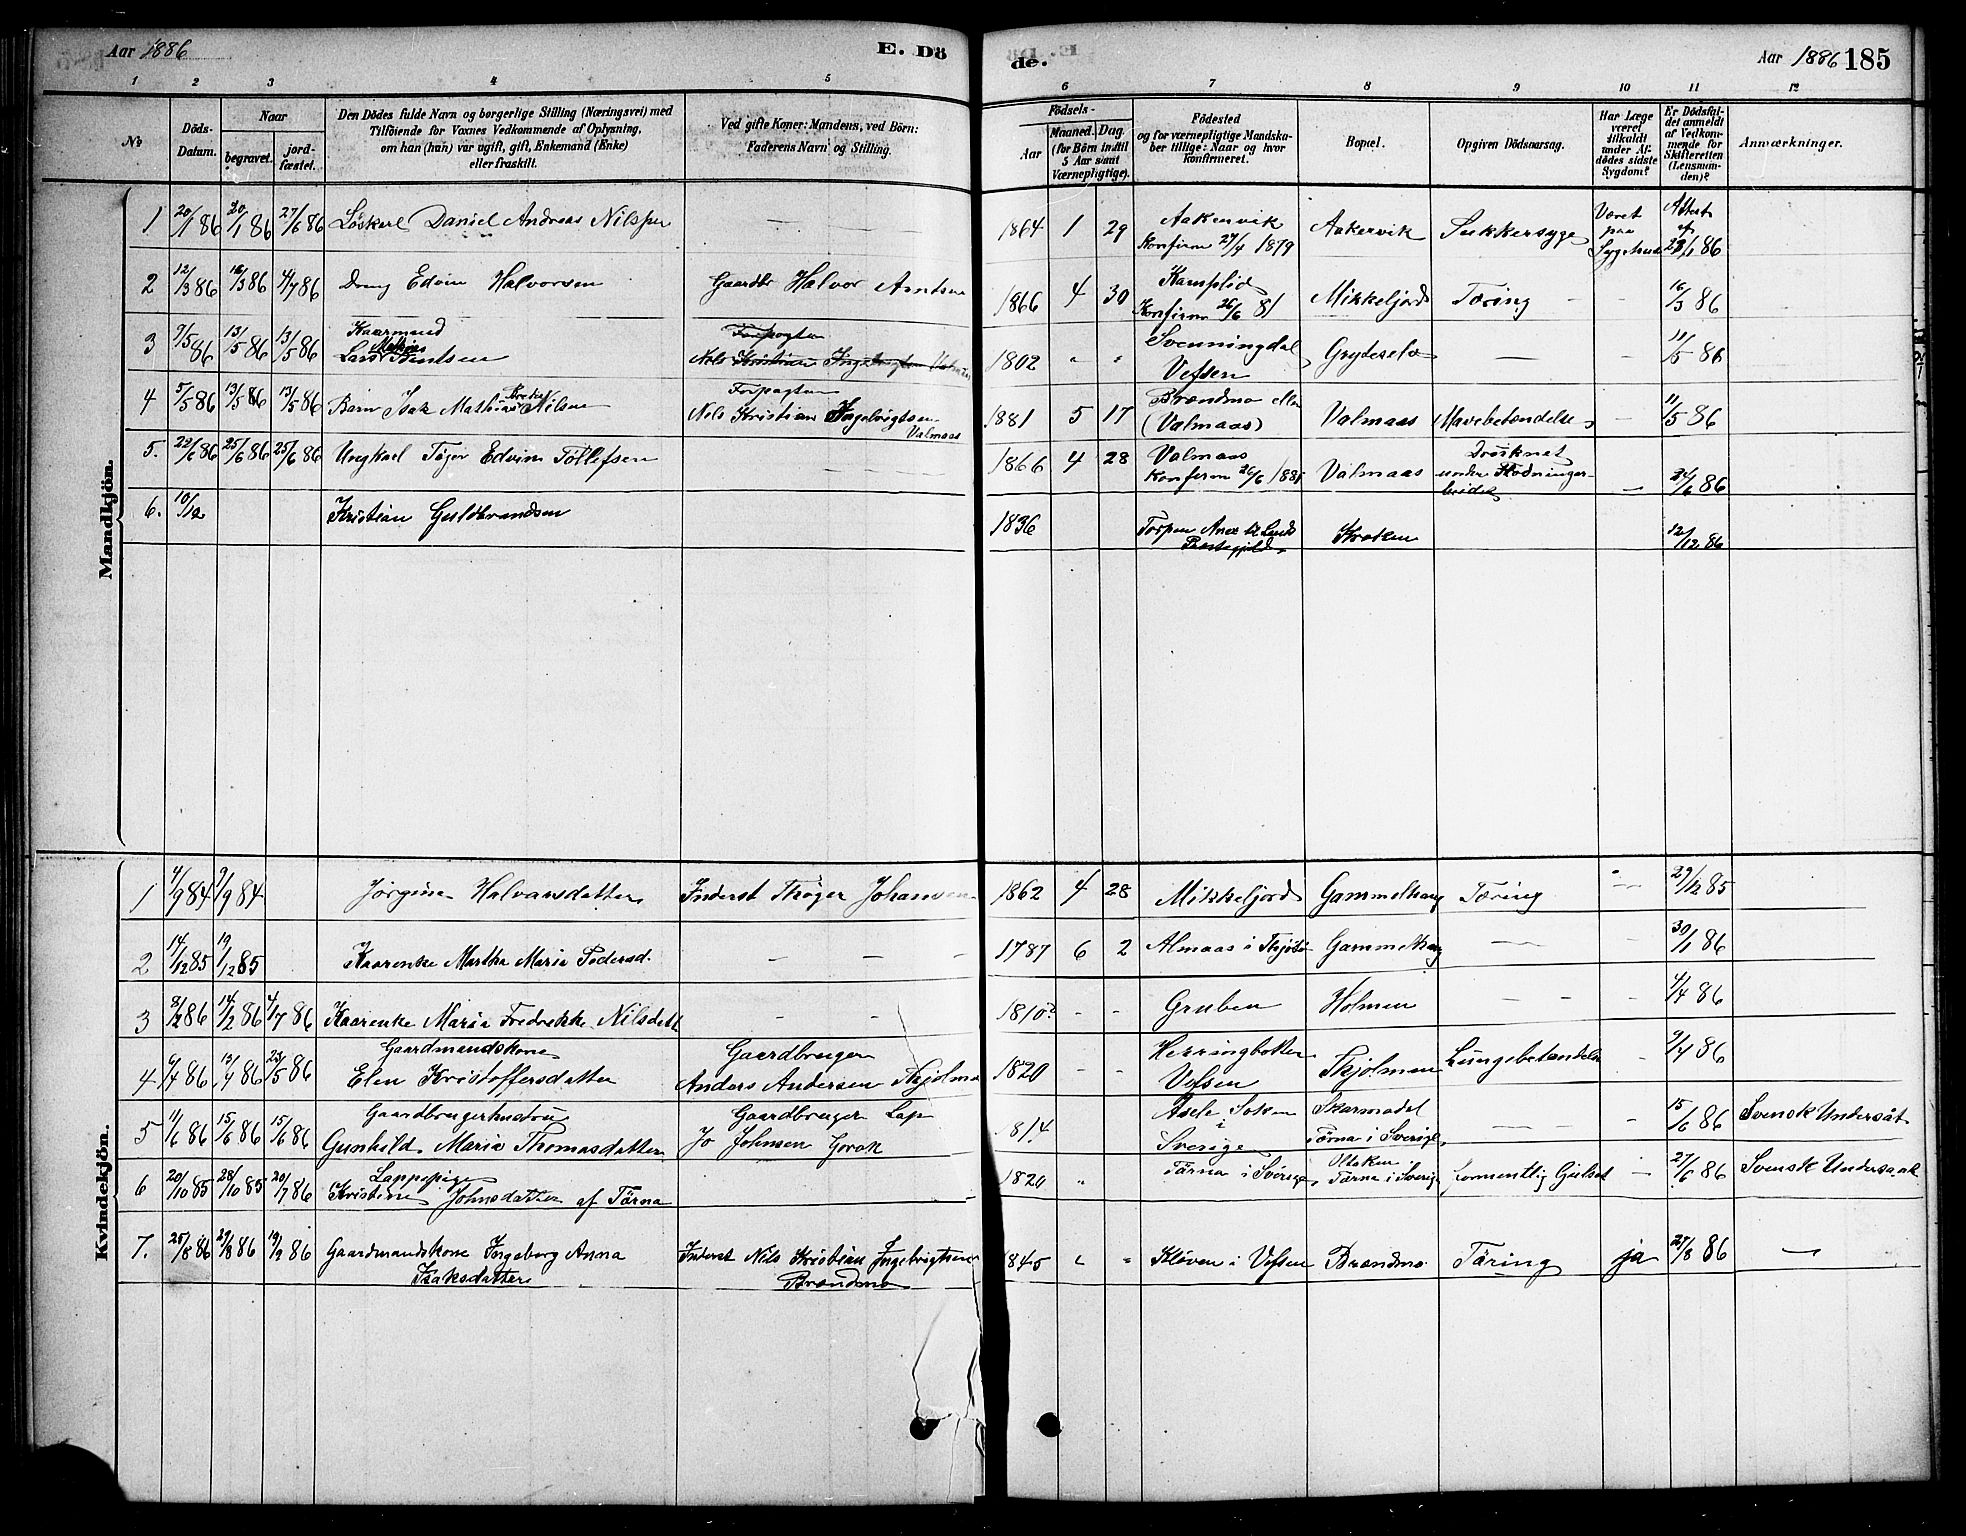 Aar 1886
E. Dö
de.
Aar 1886 185
1 2 3 4 5 6 7 8 9 10 11 12
No
Döds-
Datum.
Naar
begravet.
jord-
fæstet.
Den Dödes fulde Navn og borgerlige Stilling (Næringsvei) med
Tilföiende for Voxnes Vedkommende af Oplysning,
om han (hun) var ugift, gift, Enkemand (Enke)
eller fraskilt.
Ved gifte Koner: Mandens, ved Börn:
Faderens Navn og Stilling.
Födsels-
Aar
Maaned. Dag.
(for Börn indtil
5 Aar samt
Værnepligtige).
Födested
og for værnepligtige Mandska-
ber tillige: Naar og hvor
konfirmeret.
Bopæl.
Opgiven Dödsaarsag.
Har Læge
været
tilkaldt
under Af-
dödes sidste
Sygdom?
Er Dödsfal-
det anmeldt
af Vedkom-
mende for
Skifteretten
(Lensman-
den)?
Anmærkninger.
Mandkjön.
1 20/1 86 20/1 86 27/6 86 Löskarl Daniel Andreas Nilsen — 1864 1 29 Aakervik
Konfirm 27/4 1879 Aakervik Sukkersyge Været
paa
Sygehus Attest
af
23/1 86
2 12/3 86 16/3 86 4/7 86 Dreng Edvin Halvorsen Gaardbr Halvor Arntsen 1866 4 30 Kamplid
Konfirm 26/6 81 Mikkeljord Tæring — 16/3 86
3 7/5 86 13/5 86 13/5 86 Kaarmand
Lars Mathias Bentsen
Forpagter
Nils Kristian Ingebrigtsen Valmaas
1802 " " Svenningdal
Vefsen Gryteselv — — 11/5 86
4 5/5 86 13/5 86 13/5 86 Barn Isak Mathias Nilsen
Forpagter
Nils Kristian Ingebrigtsen
Valmaas
1881 5 17 Brændmo eller
(Valmaas) Valmaas Mavebetændelse — 11/5 86
5. 22/6 86 25/6 86 25/6 86 Ungkarl Töger Edvin Tollefsen — 1866 4 28 Valmaas
Konfirm 26/6 1881 Valmaas Drüknet
under Flödninger-
beidet — 24/6 86
6. 10/12 Kristian Guldbrandsen 1836 Torpen Anex til Lands
Præstegjeld Kroken 12/12 86
Kvindekjön.
1 4/9 84 7/9 84 Jörgine Halvarsdatter Inderst Thöger Johansen 1862 4 28 Mikkeljord Gammelhaug Tæring — 29/12 85
2 14/12 85 19/12 85 Kaarenke Martha Maria Pedersd. — — — 1787 6 2 Almaas i Gammelhaug — — 30/1 86
3 8/2 86 14/2 86 4/7 86 Kaarenke Maria Fredrekke Nilsdatt — — 1810? - - Gruben Holmen — — 4/4 86
4 4/4 86 13/4 86 23/5 86 Gaardmandskone
Elen Kristoffersdatter
Gaardbruger
Anders Andersen Tkjolmo
1820 - - Herringbotten
Vefsen Tkjolmen Lungebetændelse - 9/4 86
5 11/6 86 15/6 86 15/6 86 Gaardbrugerhustru
Gunhild Maria Thomasdatter
Gaardbruger Lap
Jo Johnsen
1814 Åsele Soken
i
Sverige Skarmodal
Tärna i Sverige — — 15/6 86 Svensk Undersåt
6 20/10 85 28/10 85 20/7 86 Lappepige
Kristine Johnsdatter af Tärna
1820 " Tärna i Sverige
Tärna i Sverige formentlig — 27/6 86 Svensk Undersaat
7. 25/8 86 29/8 86 19/9 86 Gaardmandskone Ingeborg Anna
Isaksdatter
Inderst Nils Kristian Ingebrigtsen
Brændmo
1845 " " Klöven i Vefsen Brændmo Täring ja 27/8 86 —